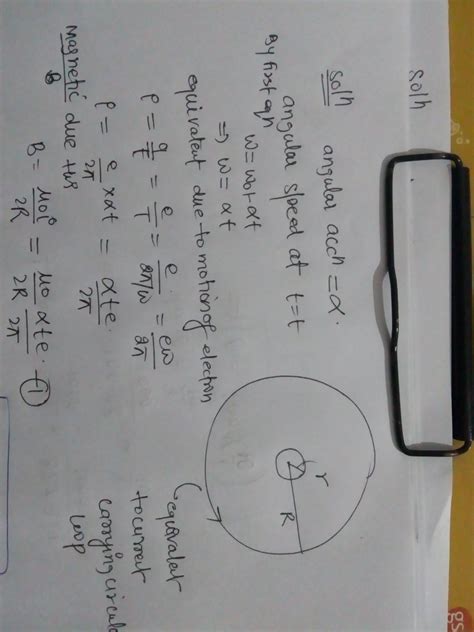 Soln
Soln angular accn = α.
angular speed at t=t
By first eqn
w = w0+αt
⇒ w = αt
equivalent due to motion of electron
P = q/t = e/T = e/2π/w = ew/2π
P = e/2π x αt = αte/2π
magnetic due this
B
B = μ0i/2R = μ0/2R αte/2π. —①
r
R
(equivalat
to current
carrying circula
loop
gs